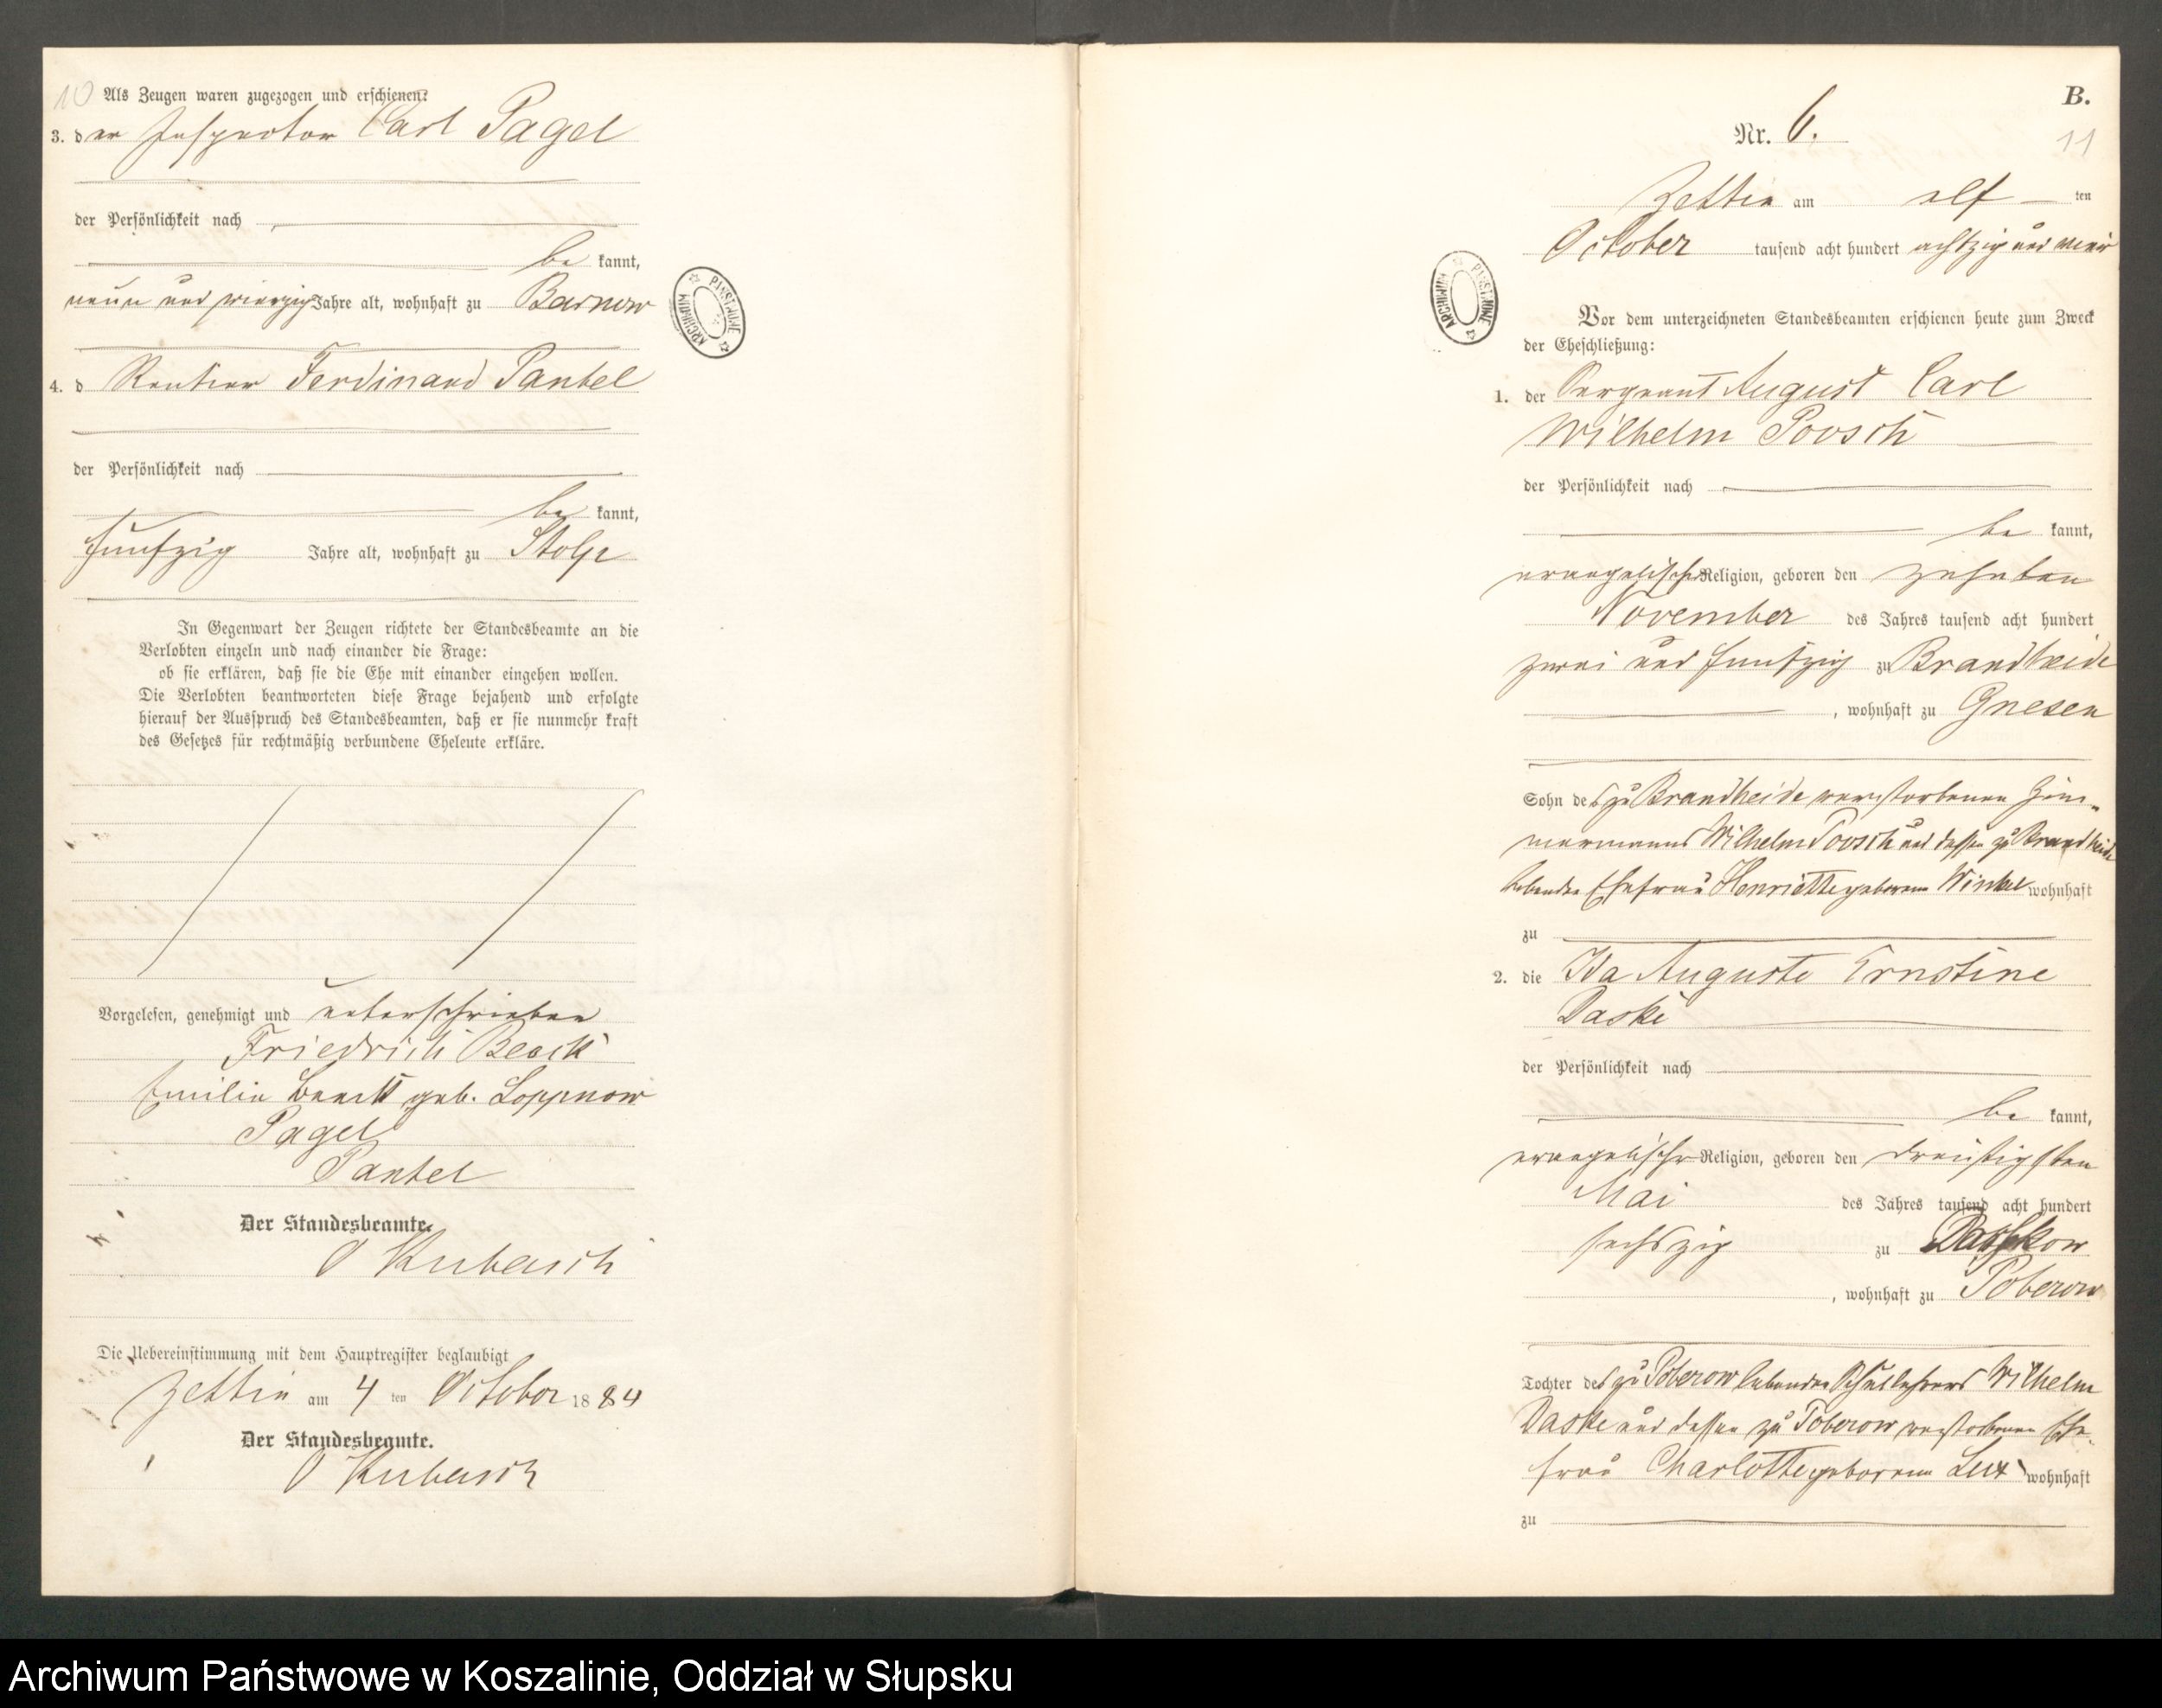 10 Als Zeugen waren zugezogen und erschienen:
3. der Inspector Carl Pagel
der Persönlichkeit nach
be kannt,
neun und vierzig Jahre alt, wohnhaft zu Barnow
4. d Rentier Ferdinand Pantel
der Persönlichkeit nach
be kannt,
funfzig Jahre alt, wohnhaft zu Stolp
In Gegenwart der Zeugen richtete der Standesbeamte an die
Verlobten einzeln und nach einander die Frage:
ob sie erklären, daß sie die Ehe mit einander eingehen wollen.
Die Verlobten beantworteten diese Frage bejahend und erfolgte
hierauf der Ausspruch des Standesbeamten, daß er sie nunmehr kraft
des Gesetzes für rechtmäßig verbundene Eheleute erkläre.
Vorgelesen, genehmigt und unterschrieben
Friedrich
Emilie geb. Loppnow
Pagel
Pantel
Der Standesbeamte.
O Kubasch
Die Uebereinstimmung mit dem Hauptregister beglaubigt
Zettin am 4 ten October 1884
Der Standesbeamte.
O Kubasch
ARCHIWUM PAŃSTWOWE
B.
Nr. 6.
11
Zettin am elf ten
October tausend acht hundert achtzig und vier
ARCHIWUM PAŃSTWOWE
Vor dem unterzeichneten Standesbeamten erschienen heute zum Zweck
der Eheschließung:
1. der Sergeant August Carl
Wilhelm Poosch
der Persönlichkeit nach
be kannt,
evangelischer Religion, geboren den zehnten
November des Jahres tausend acht hundert
zwei und funfzig zu Brandheide
, wohnhaft zu Gnesen
Sohn des zu Brandheide verstorbenen Zim-
mermanns Wilhelm Poosch und dessen zu Brandheide
lebenden Ehefrau Henriette geborene Winkel wohnhaft
zu
2. die Ida Auguste Ernstine
Daske
der Persönlichkeit nach
be kannt,
evangelischer Religion, geboren den dreißigsten
Mai des Jahres tausend acht hundert
sechszig zu
, wohnhaft zu Poberow
Tochter des zu Poberow lebenden Schullehrers Wilhelm
Daske und dessen zu Poberow verstorbenen Ehe-
frau Charlotte geborene Lux wohnhaft
zu
Archiwum Państwowe w Koszalinie, Oddział w Słupsku